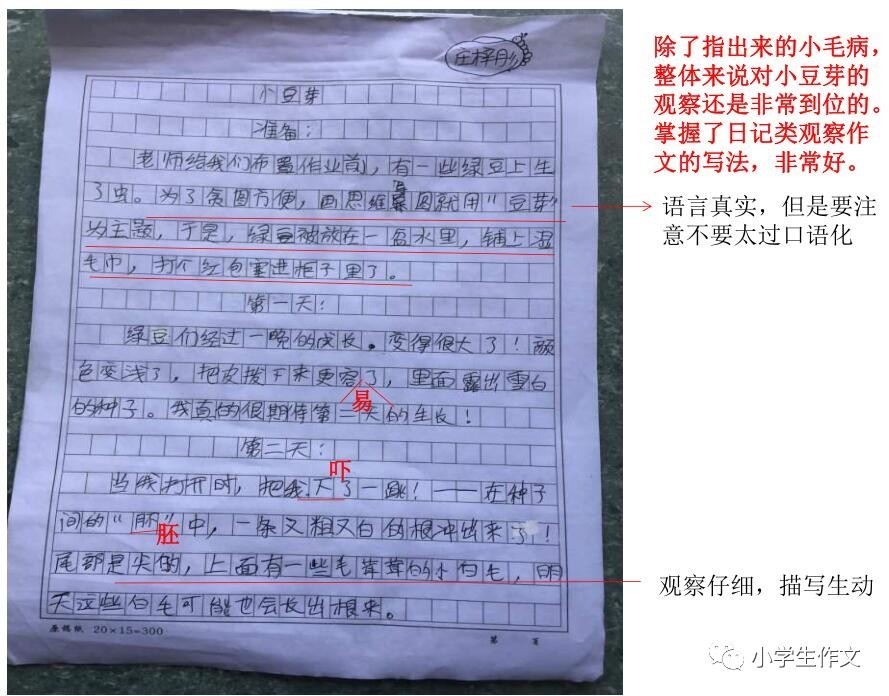 庄梓彤
小豆芽
准备：
老师给我们布置作业前，有一些绿豆上生
了虫。为了贪图方便，画思维导图就用“豆芽”
为主题，于是，绿豆被放在一盆水里，铺上湿
毛巾，打个红包塞进柜子里了。
第一天：
绿豆们经过一晚的成长。变得很大了！颜
色变浅了，把皮拨下来更容了，里面露出雪白
易
的种子。我真的很期待第二天的生长！
第二天：
吓
当我打开时，把我下了一跳！——在种子
间的“肧”中，一条又粗又白的根冲出来了！
胚
尾部是尖的，上面有一些毛茸茸的小白毛，明
天这些白毛可能也会长出根来。
原稿纸 20×15=300
第 页
除了指出来的小毛病，
整体来说对小豆芽的
观察还是非常到位的。
掌握了日记类观察作
文的写法，非常好。
语言真实，但是要注
意不要太过口语化
观察仔细，描写生动
小学生作文